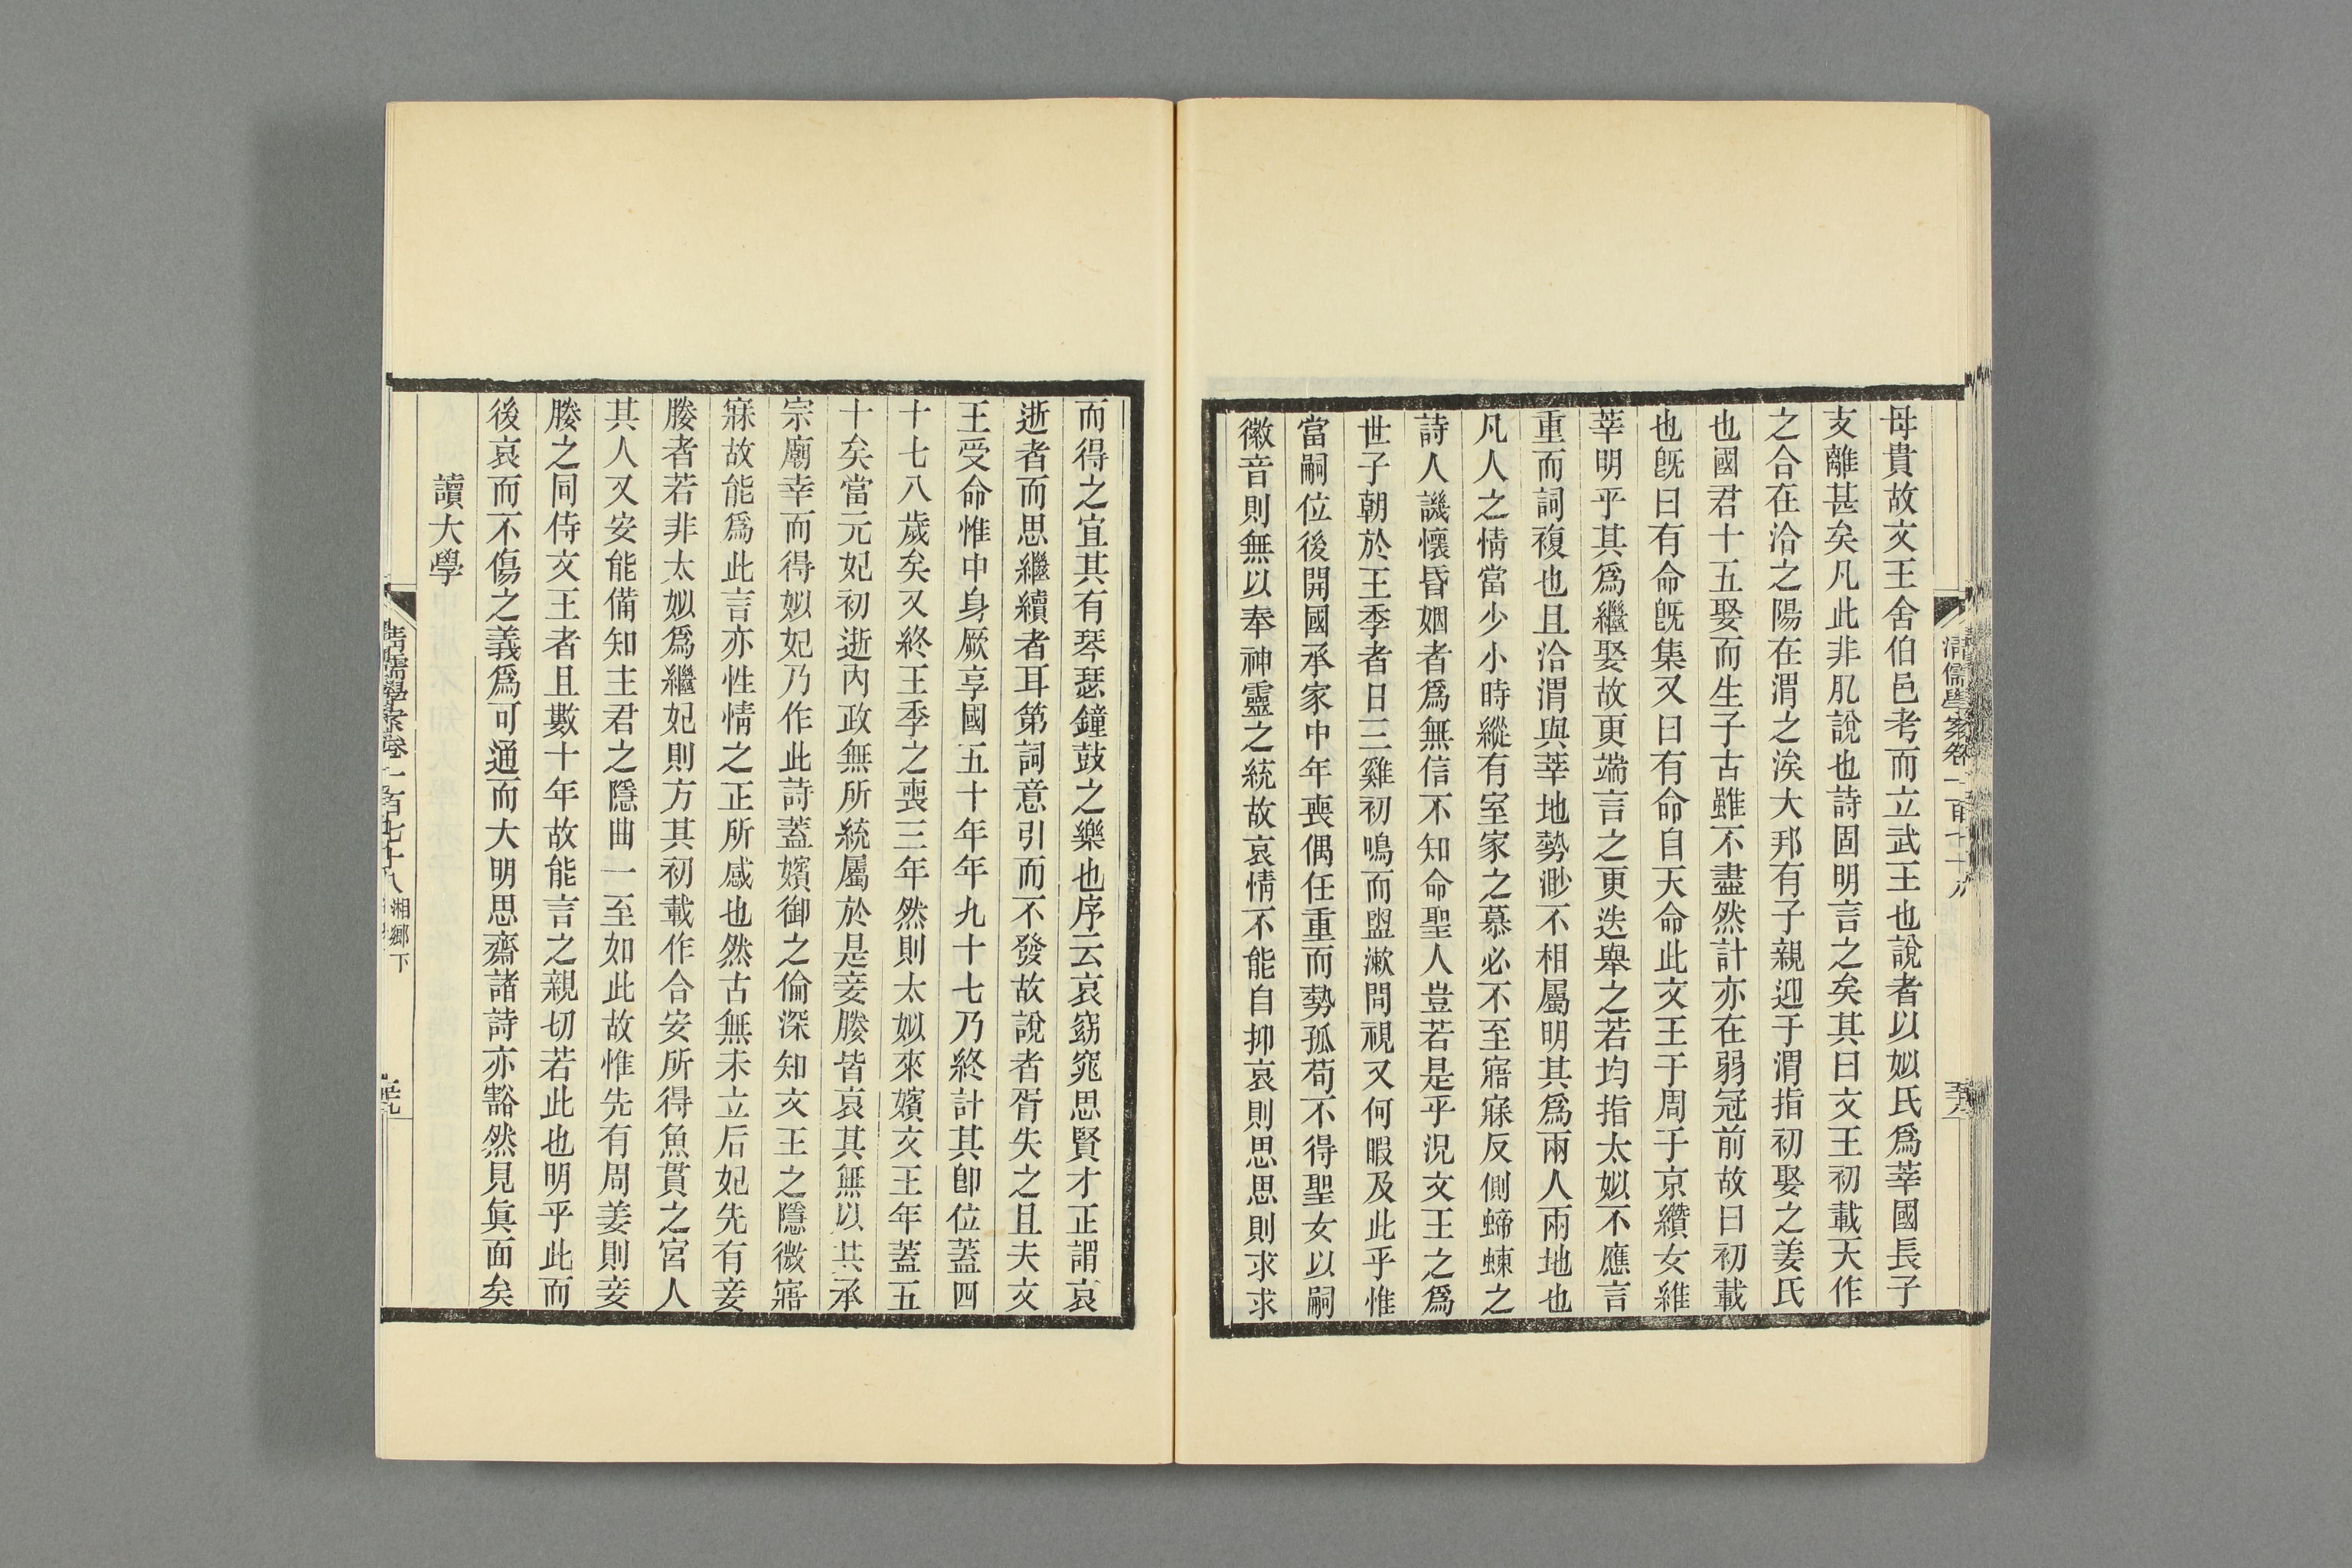 母貴故文王舍伯邑考而立武王也說者以姒氏爲莘國長子
支離甚矣凡此非肊說也詩固明言之矣其曰文王初載天作
之合在洽之陽在渭之涘大邦有子親迎于渭指初娶之姜氏
也國君十五娶而生子古雖不盡然計亦在弱冠前故曰初載
也旣曰有命旣集又曰有命自天命此文王于周于京纘女維
莘明乎其爲繼娶故更端言之更迭舉之若均指太姒不應言
重而詞複也且洽渭與莘地勢渺不相屬明其爲兩人兩地也
凡人之情當少小時縱有室家之慕必不至寤寐反側蝃蝀之
詩人譏懷昏姻者爲無信不知命聖人豈若是乎況文王之爲
世子朝於王季者日三雞初鳴而盥漱問視又何暇及此乎惟
當嗣位後開國承家中年喪偶任重而勢孤苟不得聖女以嗣
徽音則無以奉神靈之統故哀情不能自抑哀則思思則求求
清儒學案卷一百七十八
而得之宜其有琴瑟鐘鼓之樂也序云哀窈窕思賢才正謂哀
逝者而思繼續者耳第詞意引而不發故說者胥失之且夫文
王受命惟中身厥享國五十年年九十七乃終計其卽位蓋四
十七八歲矣又終王季之喪三年然則太姒來嬪文王年蓋五
十矣當元妃初逝內政無所統屬於是妾媵皆哀其無以共承
宗廟幸而得姒妃乃作此詩蓋嬪御之倫深知文王之隱微寤
寐故能爲此言亦性情之正所感也然古無未立后妃先有妾
媵者若非太姒爲繼妃則方其初載作合安所得魚貫之宮人
其人又安能備知主君之隱曲一至如此故惟先有周姜則妾
媵之同侍文王者且數十年故能言之親切若此也明乎此而
後哀而不傷之義爲可通而大明思齋諸詩亦豁然見眞面矣
讀大學
清儒學案卷一百七十八 湘鄉下